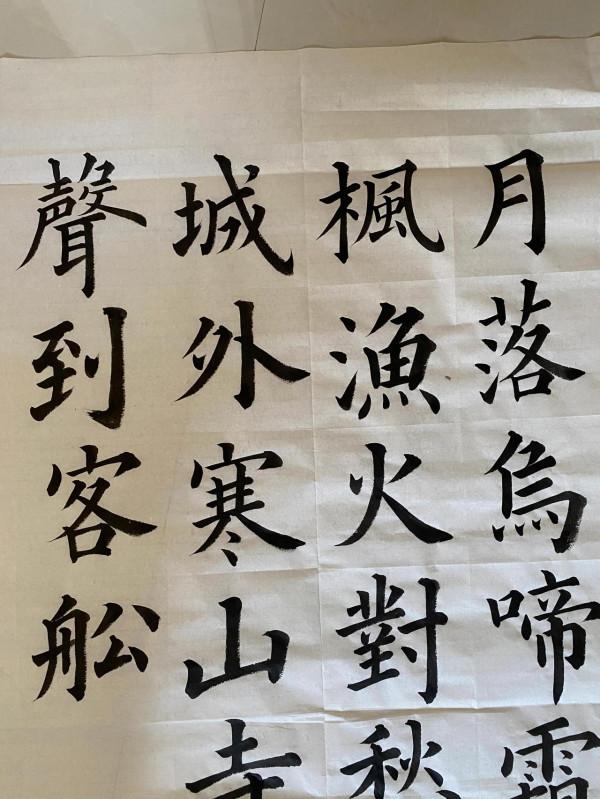 月落烏啼霜
楓漁火對秋
城外寒山寺
聲到客舩